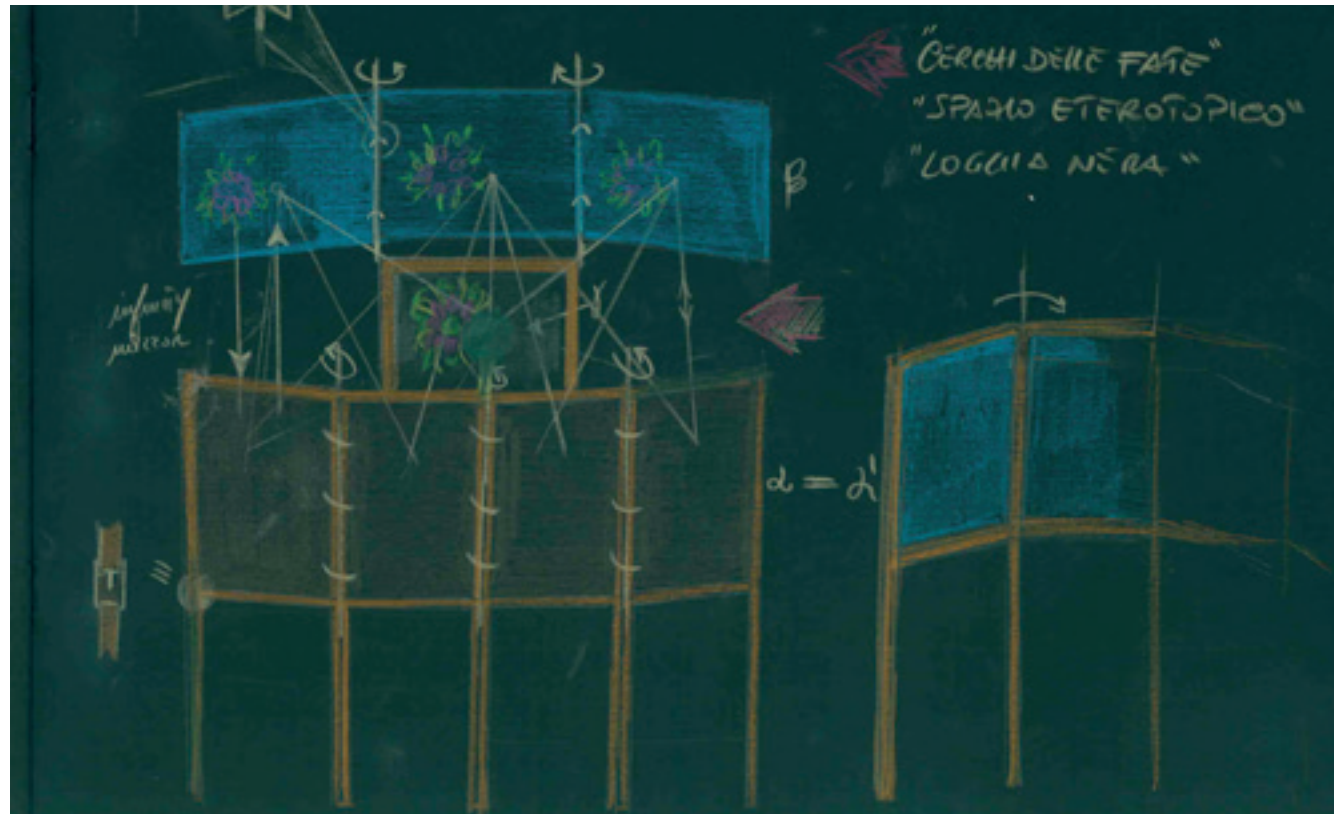 "CERCHI DELLE FATE"
"SPAZIO ETEROTOPICO"
"LOGGIA NERA"
β
infinity
mirror
α = α'
T